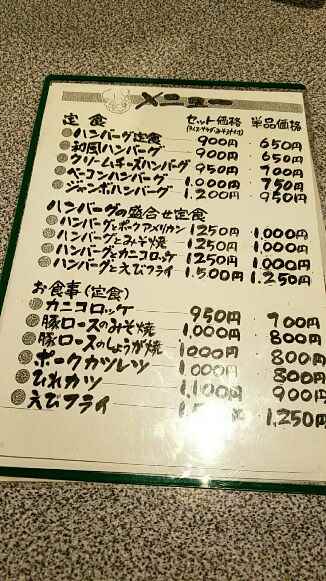 メニュー
定食 セット価格 単品価格
ハンバーグ定食 900円 650円
和風ハンバーグ 900円 650円
クリームチーズハンバーグ 950円 700円
ベーコンハンバーグ 1.000円 750円
ジャンボハンバーグ 1.200円 950円
ハンバーグの盛合せ定食
ハンバーグとポークアメリカン 1250円 1,000円
ハンバーグとみそ焼 1250円 1,000円
ハンバーグとカニコロッケ 1.250円 1,000円
ハンバーグとえびフライ 1.500円 1.250円
お食事(定食)
カニコロッケ 950円 700円
豚ロースのみそ焼 1.000円 800円
豚ロースのしょうが焼 1000円 800円
ポークカツレツ 1000円 800円
ひれカツ 1,100円 900円
えびフライ 1,250円